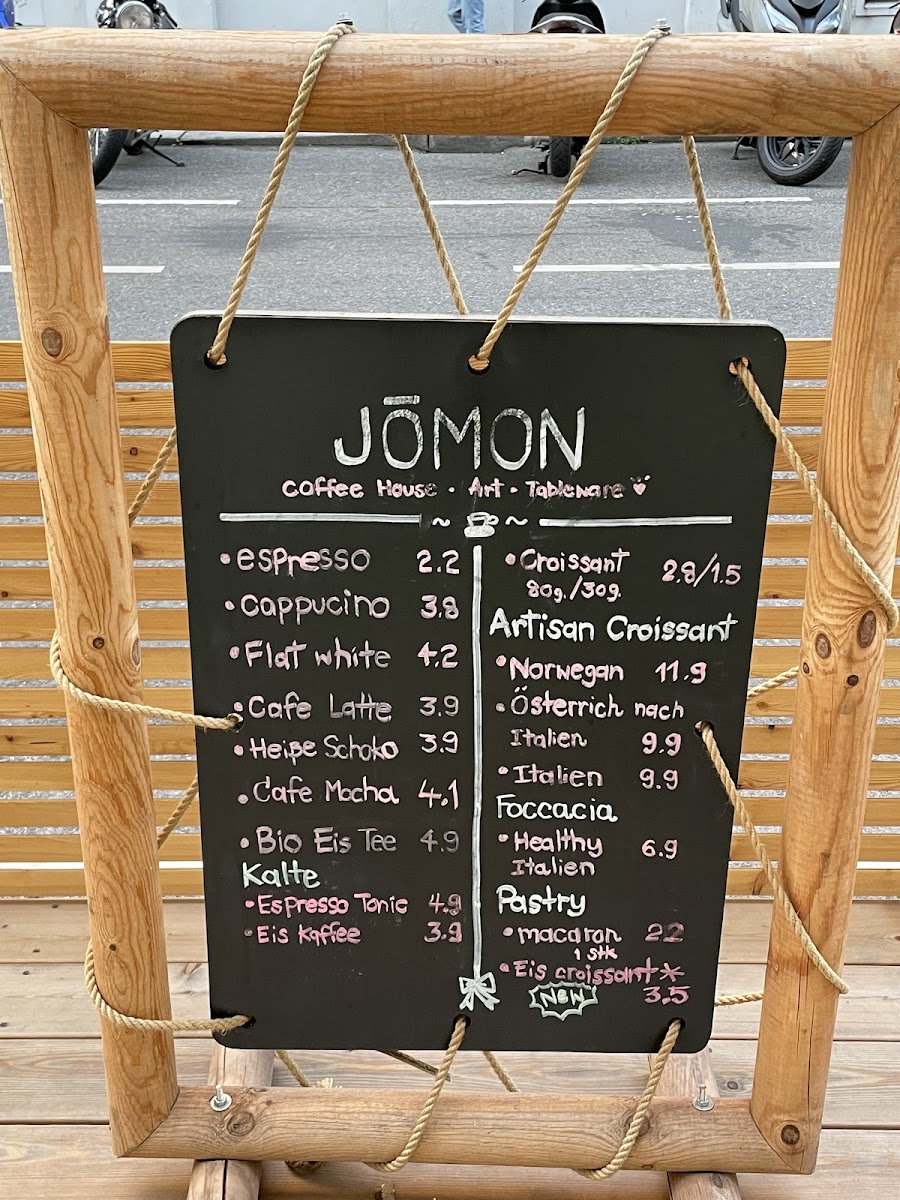 JŌMON
Coffee House · Art · Tableware
~ ~
• espresso 2.2
• Cappucino 3.8
• Flat white 4.2
• Cafe Latte 3.9
• Heiße Schoko 3.9
• Cafe Mocha 4.1
• Bio Eis Tee 4.9
Kalte
• Espresso Tonic 4.9
• Eis Kaffee 3.9
• Croissant 2.8/1.5
80g./30g.
Artisan Croissant
• Norwegan 11.9
• Österrich nach
Italien 9.9
• Italien 9.9
Foccacia
• Healthy 6.9
Italien
Pastry
• macaron 2.2
1 Stk
• Eis croissant*
NEW 3.5